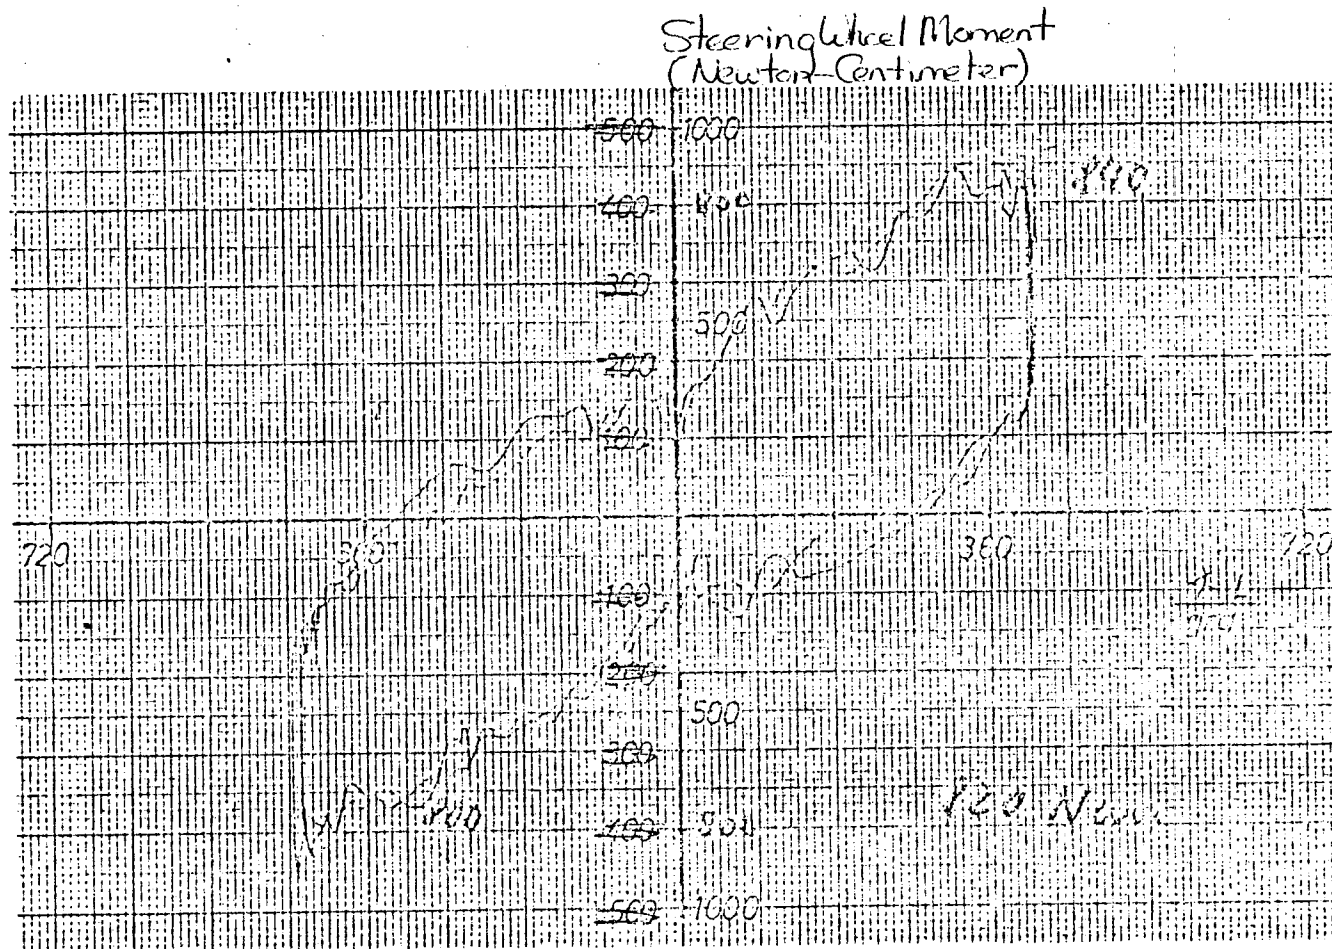 Steering Wheel Moment
(Newton-Centimeter)
500 1000
840
400 800
300
500
200
100
720 360 360 720
100
200
500
300
800
400 800
500 1000